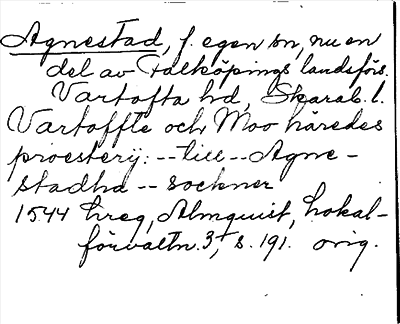 Agnestad, f. egen sn, nu en
del av Falköpings landsförs.
Vartofta hd, Skarab. l.
Vartoffte och Moo häredes
proesterij: -- till -- Agne-
stadha -- sockner
1544 hreg, Almquist, Lokal-
förvaltn. 3, s. 191. orig.